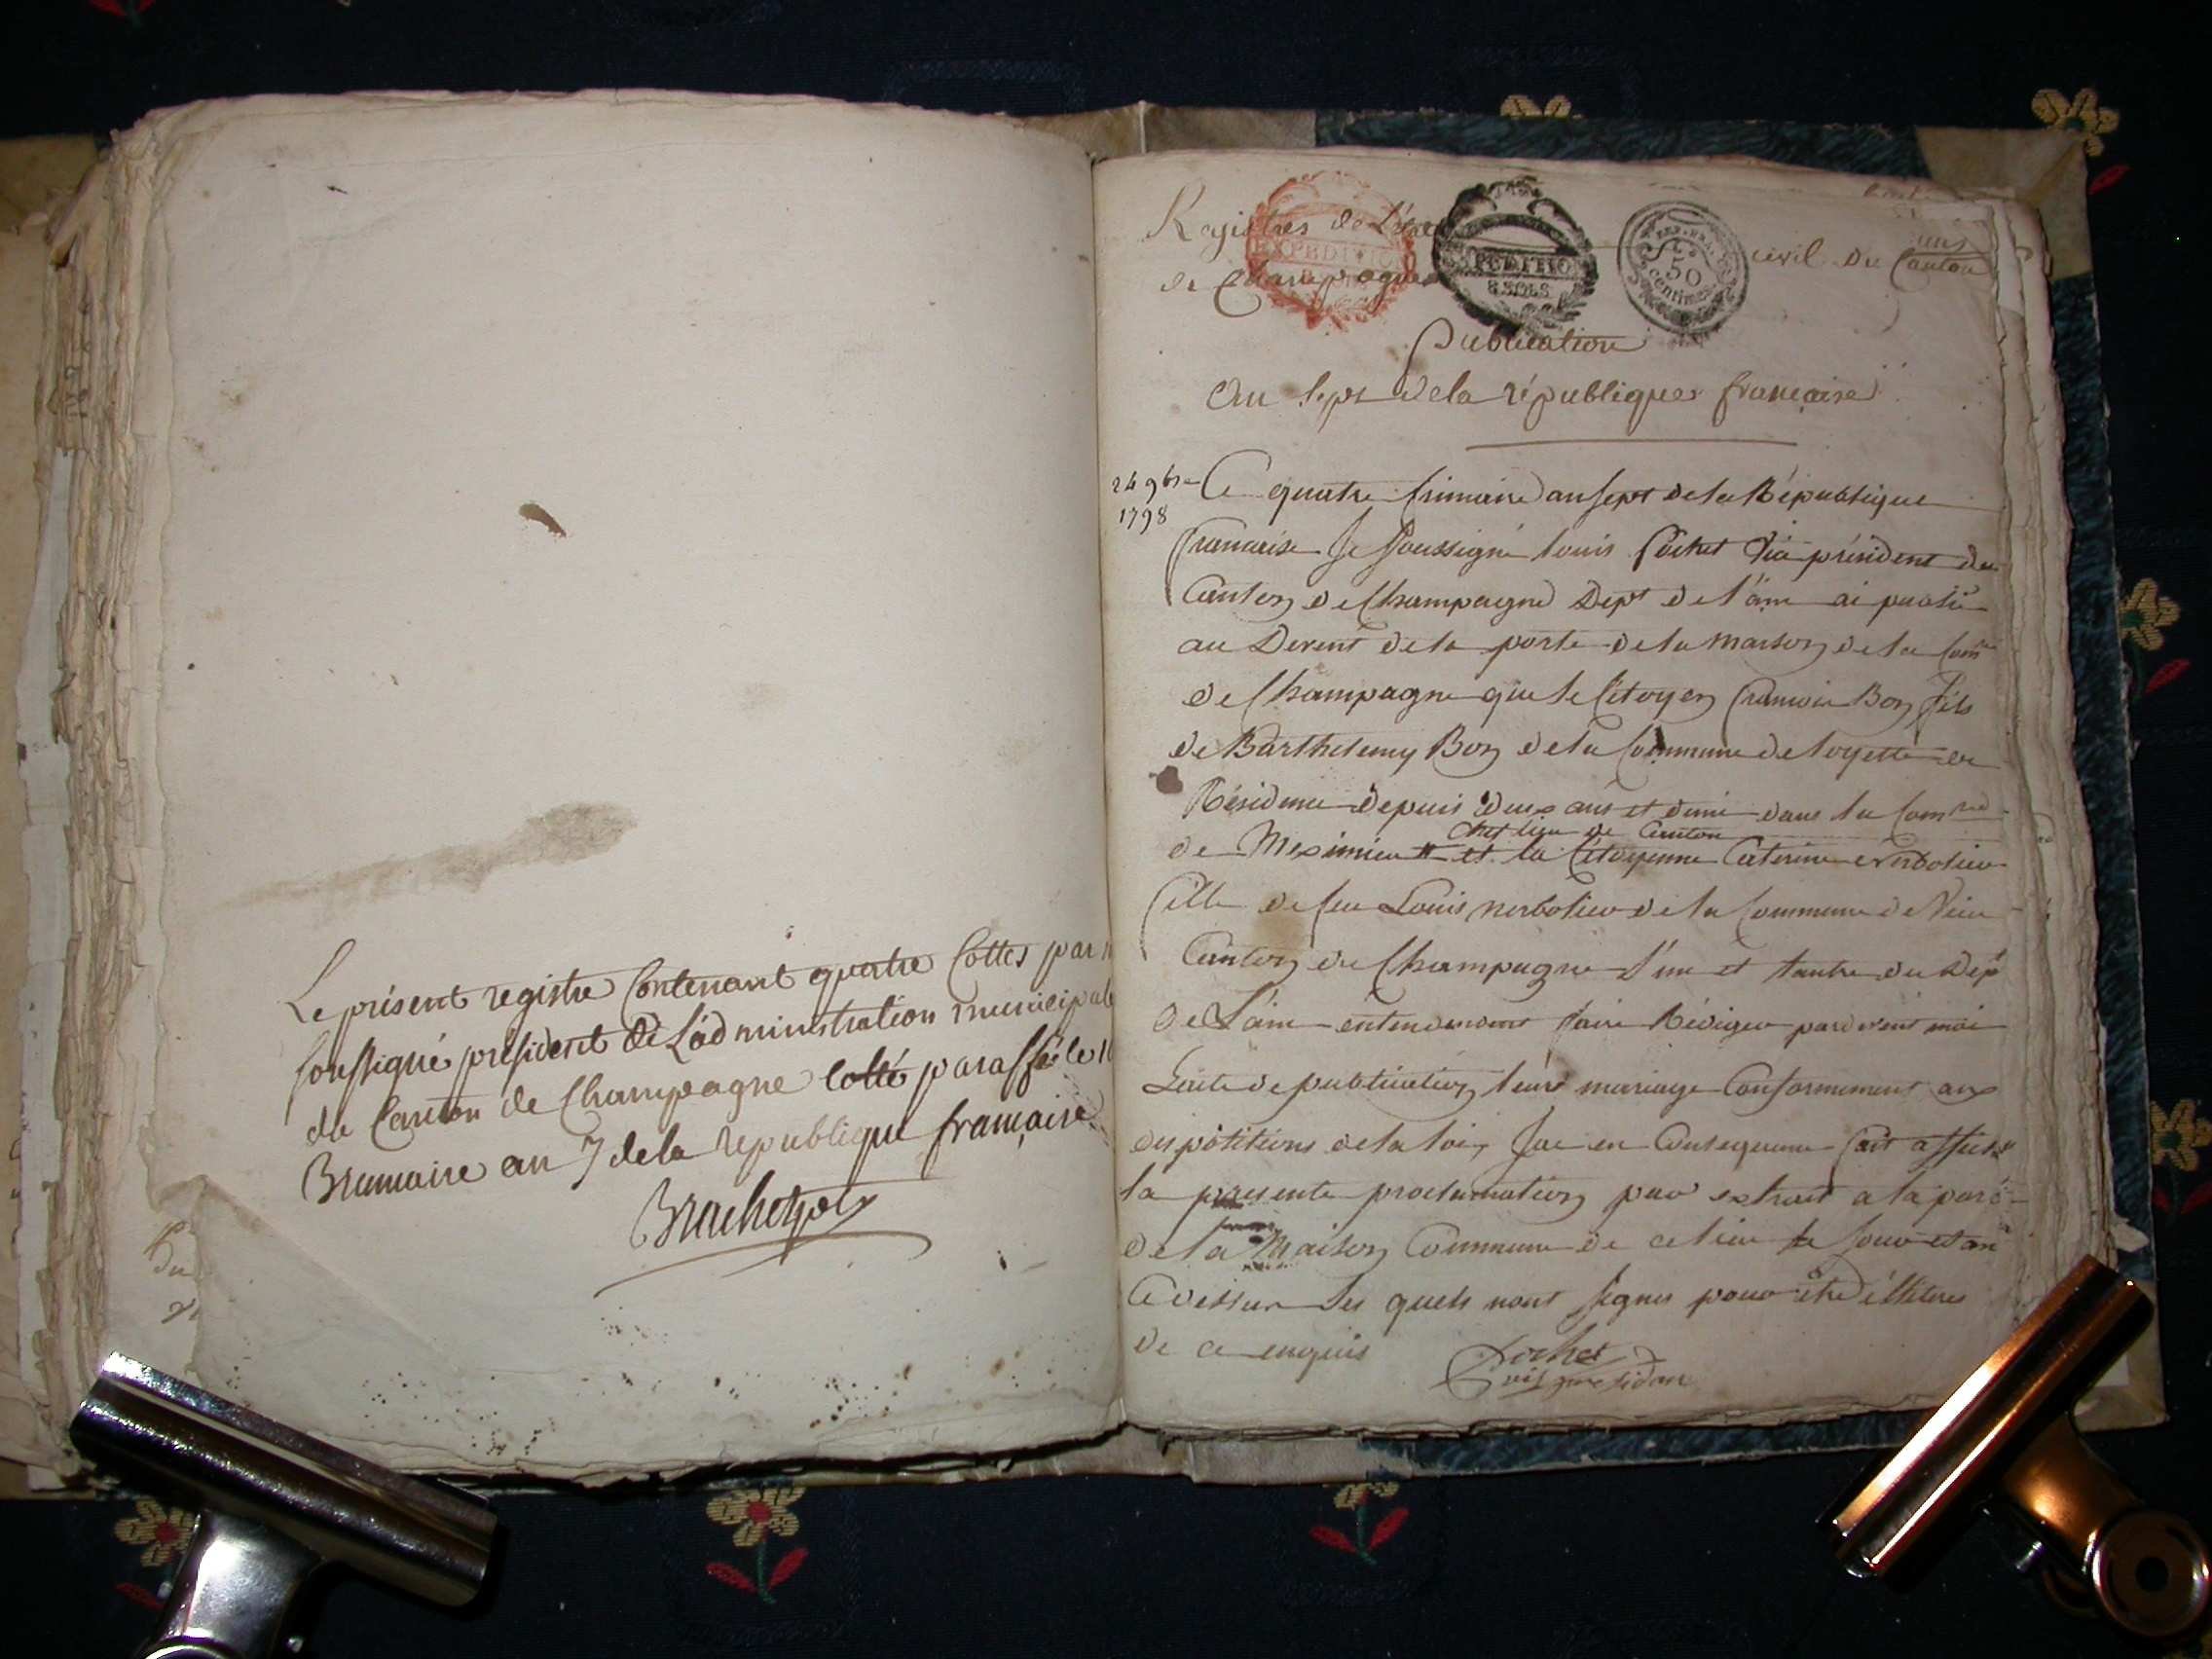 Le présent registre Contenant quatre Cottes par
soussigné président de L'administration municipale
du Canton de Champagne Cotté paraffé le
Brumaire an 7 de la republique française
Registres de L'état civil du Canton
de Champagne
EXPEDITION
EXPEDITION
8 SOLS
50
centimes
Publication
an sept de la république française
24 9bre
1798
Ce quatre frimaire an sept de la République
française Je Soussigné Louis Cochet vice président du
Canton de Champagne Dept de l'ain ai publié
au Devent de la porte de la Maison de la Comne
de Champagne que le Citoyen francois Bon fils
de Barthelemy Bon de la Commune de loyette en
Résidence depuis deux ans et demi dans la Comne
chef lieu de Canton
de Meximieu et la Citoyenne Caterine
fille de feu Louis de la Commune de Vieu
Canton de Champagne L'un et lautre du Dept
de L'ain entendement faire Rédiger pardevent moi
Laite de publication leur mariage Conformement aux
dispotitions de la loi, Jai en Consequence fait afficher
la presente proclamation par extrait a la porte
de la Maison Commune de ce lieu le jour et an
Ce dessur les quels nont signes pour être illitérés
de ce enquis
Cochet
vis presidan